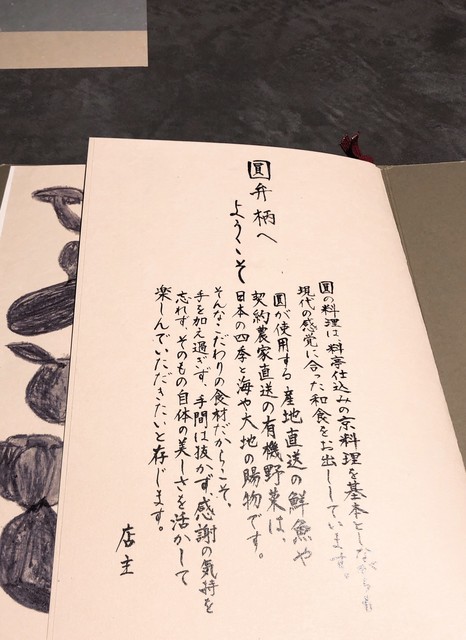 圓弁柄へ
ようこそ
圓の料理は、料亭仕込みの京料理を基本としながらも
現代の感覚に合った和食をお出ししています。
圓が使用する産地直送の鮮魚や
契約農家直送の有機野菜は、
日本の四季と海や大地の賜物です。
そんなこだわりの食材だからこそ、
手を加え過ぎず、手間は抜かず、感謝の気持を
忘れず、そのもの自体の美しさを活かして
楽しんでいただきたいと存じます。
店主